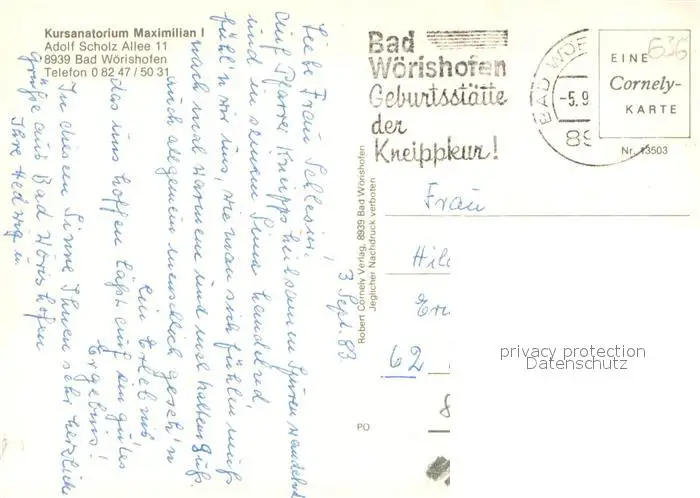 Kursanatorium Maximilian I
Adolf Scholz Allee 11
8939 Bad Wörishofen
Telefon 0 82 47 / 50 31
3. Sept. 83
Liebe Frau
auf Pfarrer Kneipps heilsamen Spuren wandelnd
und in seinem Sinn handelnd,
fühl'n wir uns, wie man sich fühlen muß
nach viel warmem und viel kaltem Guß.
auch allgemein menschlich geseh'n
ein Erlebnis,
das uns hoffen läßt auf ein gutes
Ergebnis!
In diesem Sinne Ihnen sehr herzliche
Grüße aus Bad Wörishofen
Ihre Hedwig
Robert Cornely Verlag, 8939 Bad Wörishofen
Jeglicher Nachdruck verboten
Bad
Wörishofen
Geburtsstätte
der
Kneippkur!
BAD WÖR
-5.9
89
636
EINE
Cornely-
KARTE
Nr. 13503
Frau
62
PO
privacy protection
Datenschutz